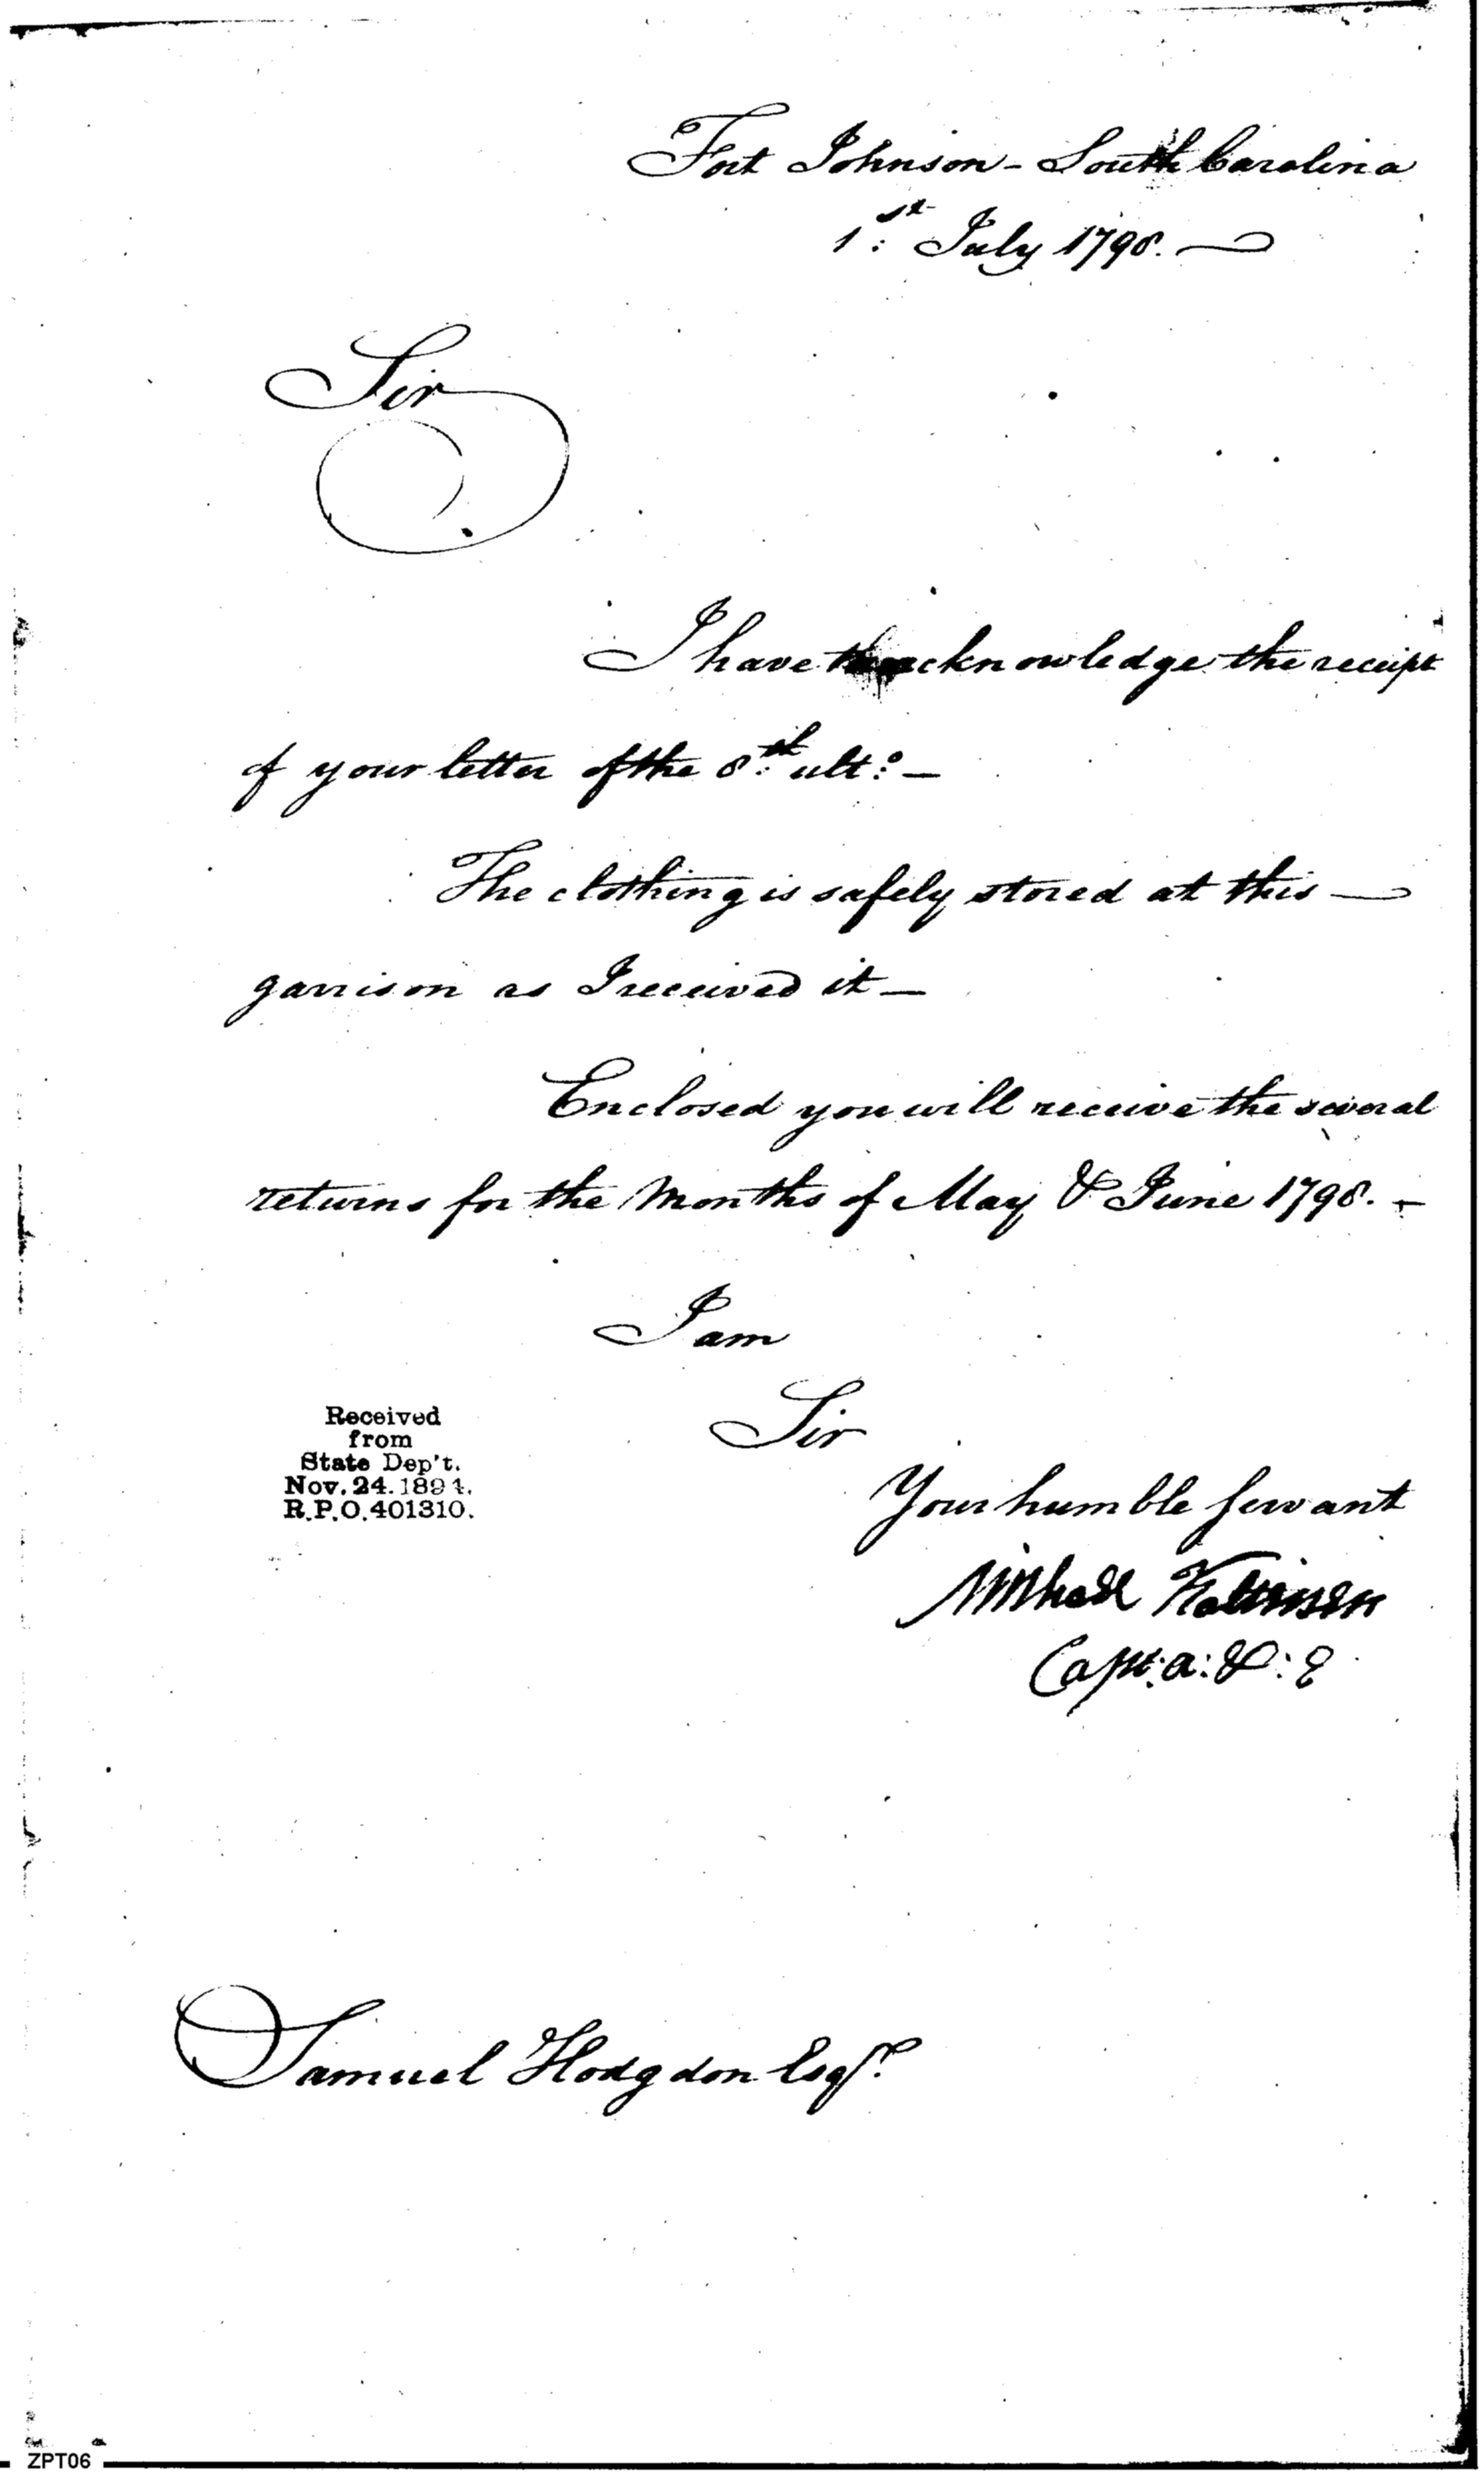 Fort Johnson - South Carolina
1st: July 1798. —
Sir
I have to acknowledge the receipt
of your letter of the 8th: ulto: —
The clothing is safely stored at this —
garrison as I received it —
Enclosed you will receive the several
returns for the Months of May & June 1798. —
I am
Sir
Your humble servant
Received
from
State Dep't.
Nov. 24. 1894.
R.P.O. 401310.
Michael Kalteisen
Capt: a: & : E
Samuel Hodgdon Esqr.
ZPT06